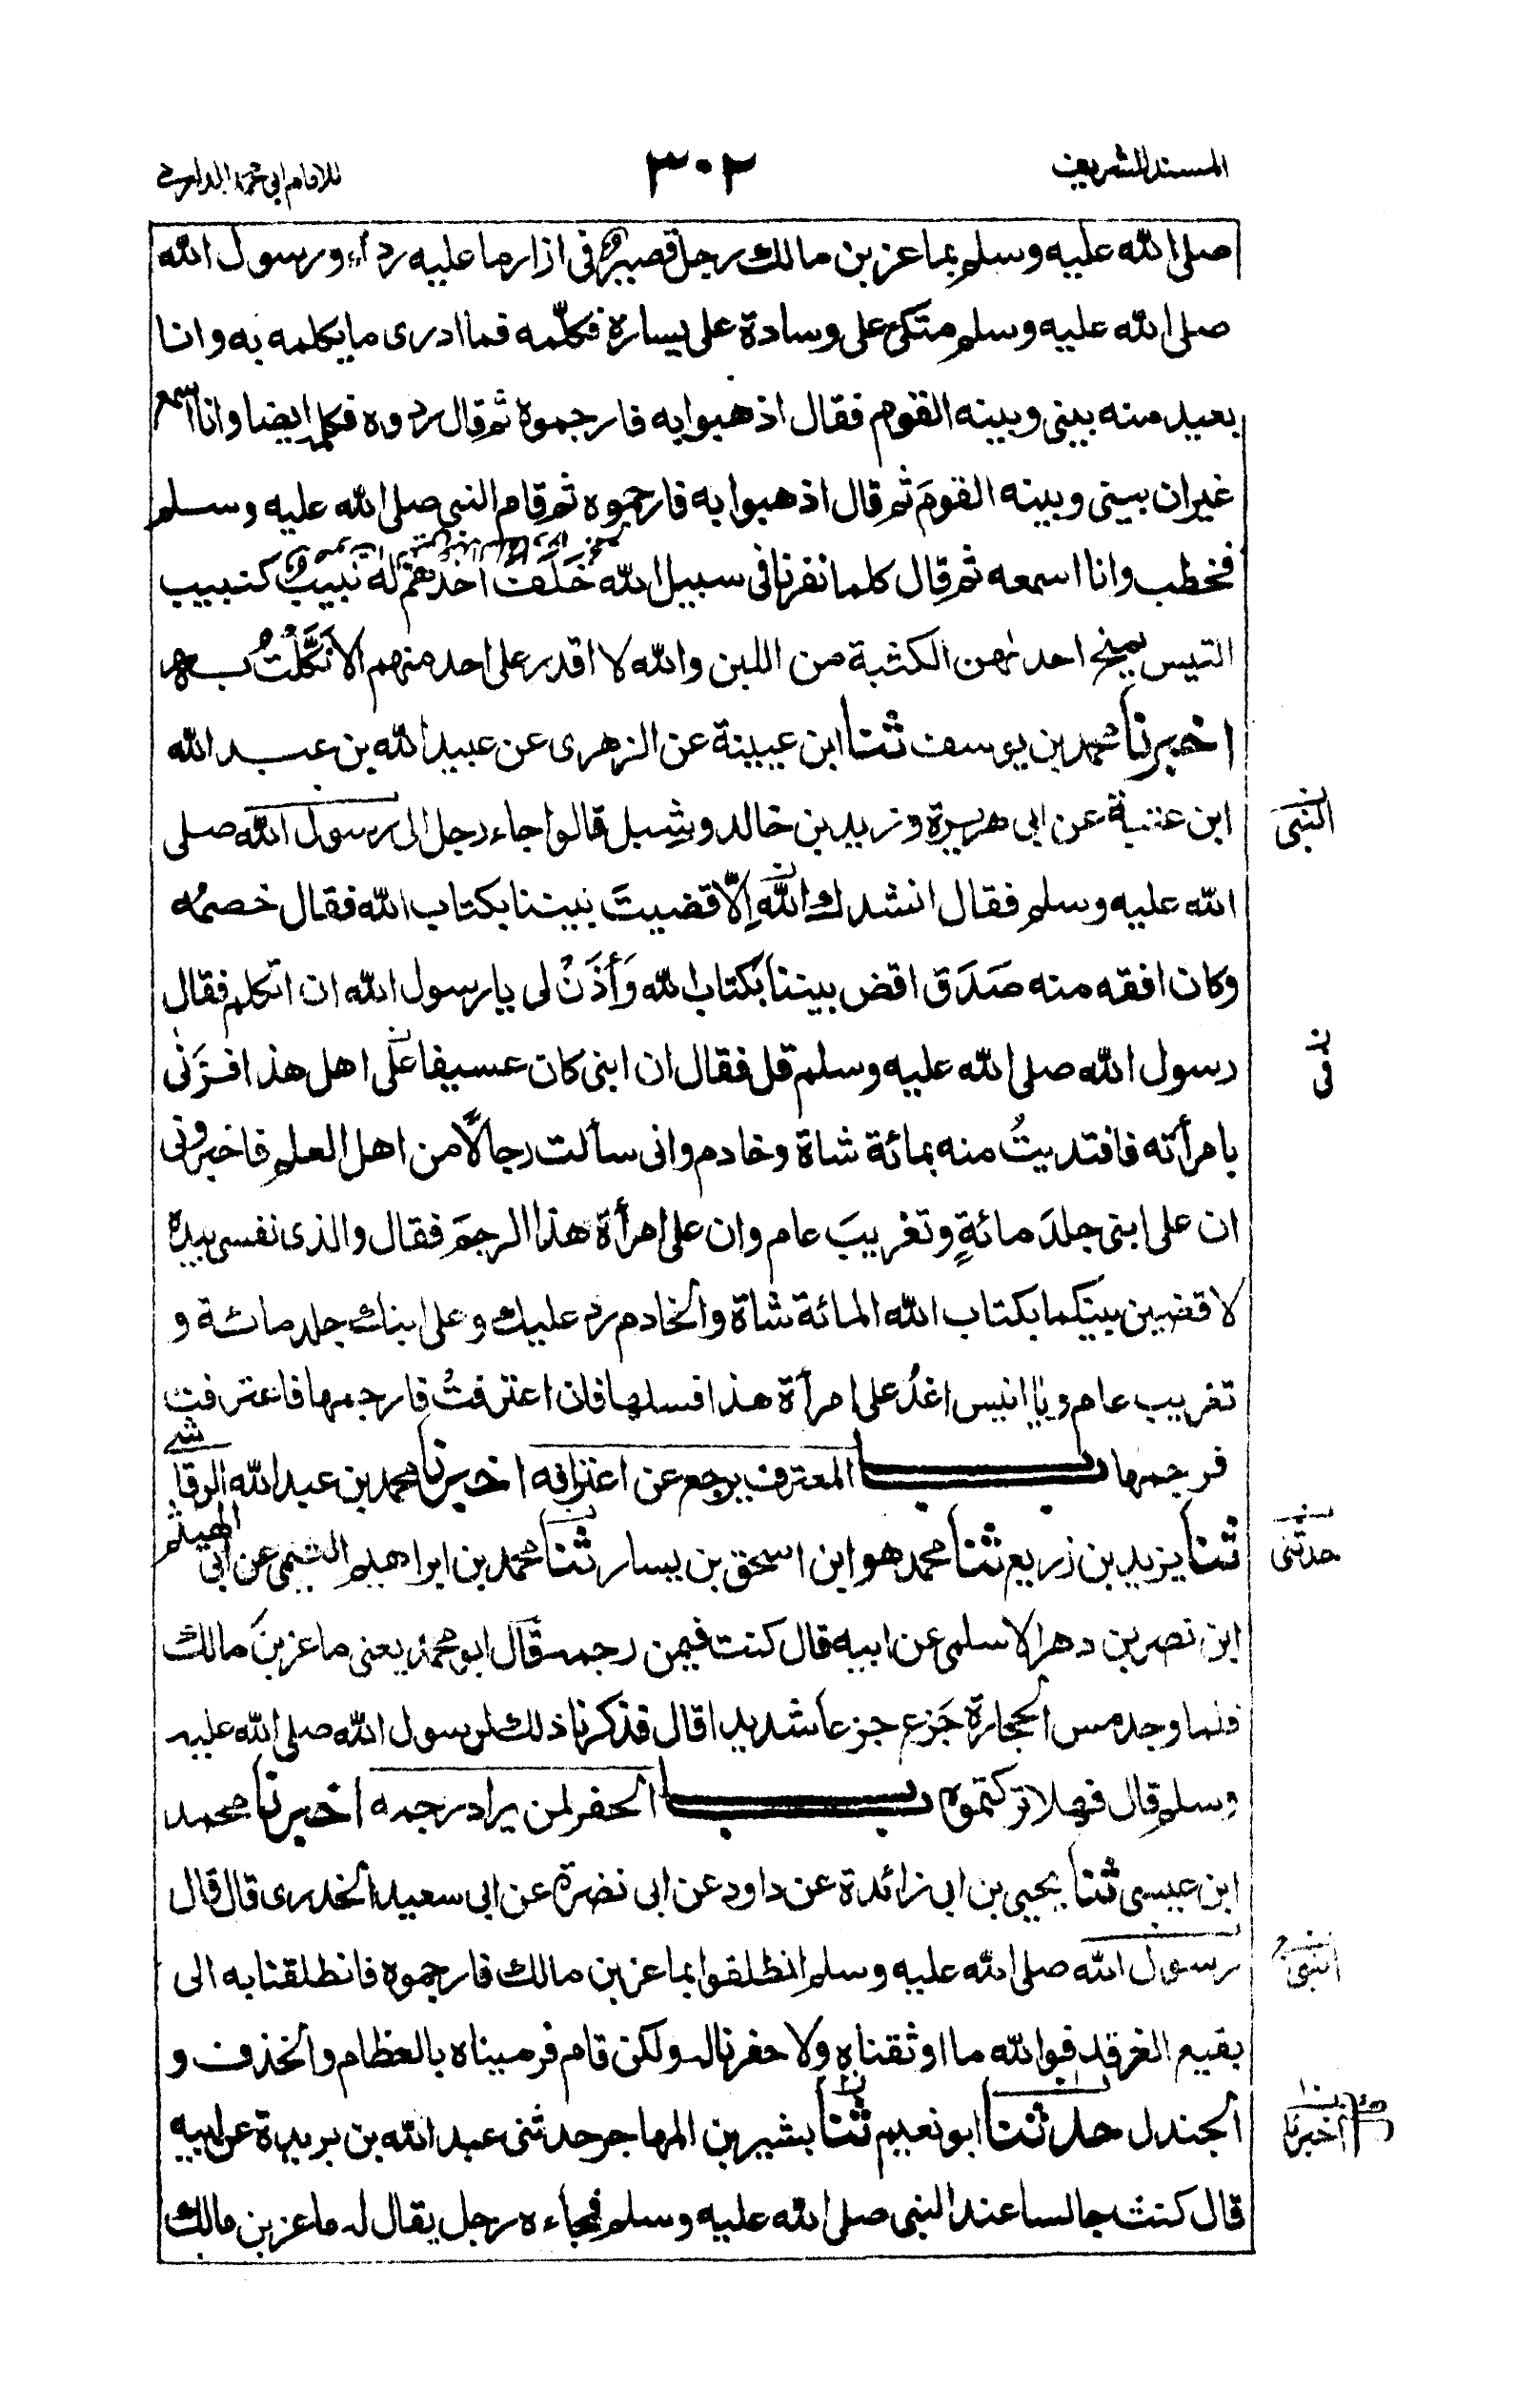 المسند الشريف
٣٠٢
للامام ابى محمد الدارمى
صلى الله عليه وسلم بماعز بن مالك رجل قصير فى ازار ما عليه رداء ورسول الله
صلى الله عليه وسلم متكئ على وسادة على يساره فكلّمه فما ادرى ما يكلمه به وانا
بعيد منه بينى وبينه القوم فقال اذهبوا به فارجموه ثم قال ردوه فكلمه ايضا وانا اسمع
غير ان بينى وبينه القومَ ثم قال اذهبوا به فارجموه ثم قام النبى صلى الله عليه وسلم
فخطب وانا اسمعه ثم قال كلما نفرنا فى سبيل الله خَلَفَ احدهم له نبيبٌ كنبيب
التيس يمنح احدٰهن الكثبة من اللبن والله لا اقدر على احد منهم الا نَكَّلْتُ به
اخبرنا محمد بن يوسف ثنا ابن عيينة عن الزهرى عن عبيد الله بن عبد الله
ابن عتبة عن ابى هريرة وزيد بن خالد وشِبل قالوا جاء رجل الى رسول الله صلى
النبى
الله عليه وسلم فقال انشدك والله اِلّا قضيتَ بيننا بكتاب الله فقال خصمُه
وكان افقه منه صَدَقَ اقض بيننا بكتاب الله وَأْذَنْ لى يا رسول الله ان اتكلم فقال
رسول الله صلى الله عليه وسلم قل فقال ان ابنى كان عسيفا على اهل هذا فزَنٰى
فى
بامرأته فافتديتُ منه بمائة شاة وخادم وانى سألت رجالًا من اهل العلم فاخبرونى
ان على ابنى جلدَ مائةٍ وتغريبَ عام وان على امرأة هذا الرجمَ فقال والذى نفسى بيده
لاقضين بينكما بكتاب الله المائة شاة والخادم رد عليك وعلى ابنك جلد مائة و
تغريب عام ويا انيس اغدُ على امرأة هذا فسلها فان اعترفتْ فارجمها فاعترفت
فرجمها باب المعترف يرجع عن اعترافه اخبرنا محمد بن عبد الله الرقاشى
ثنا يزيد بن زريع ثنا محمد هو ابن اسحق بن يسار ثنا محمد بن ابراهيم التيمى عن ابى الهيثم
حدثنى
ابن نصر بن دهر الاسلمى عن ابيه قال كنت فيمن رجمه قال ابو محمد يعنى ماعز بنَ مالك
فلما وجد مس الحجارة جَزع جزعا شديدا قال فذكرنا ذلك لرسول الله صلى الله عليه
وسلم قال فهلا تركتموه باب الحفر لمن يراد رجمه اخبرنا محمد
ابن عيسى ثنا يحيى بن ابى زائدة عن داود عن ابى نضرة عن ابى سعيد الخدرى قال قال
رسول الله صلى الله عليه وسلم انطلقوا بماعز بن مالك فارجموه فانطلقنا به الى
النبى
بقيع الغرقد فوالله ما اوثقناه ولا حفرنا له ولكن قام فرميناه بالعظام والخذف و
الجندل حدثنا ابو نعيم ثنا بشير بن المهاجر حدثنى عبد الله بن بريدة عن ابيه
اخبرنا
قال كنت جالسا عند النبى صلى الله عليه وسلم فجاءه رجل يقال له ماعز بن مالك